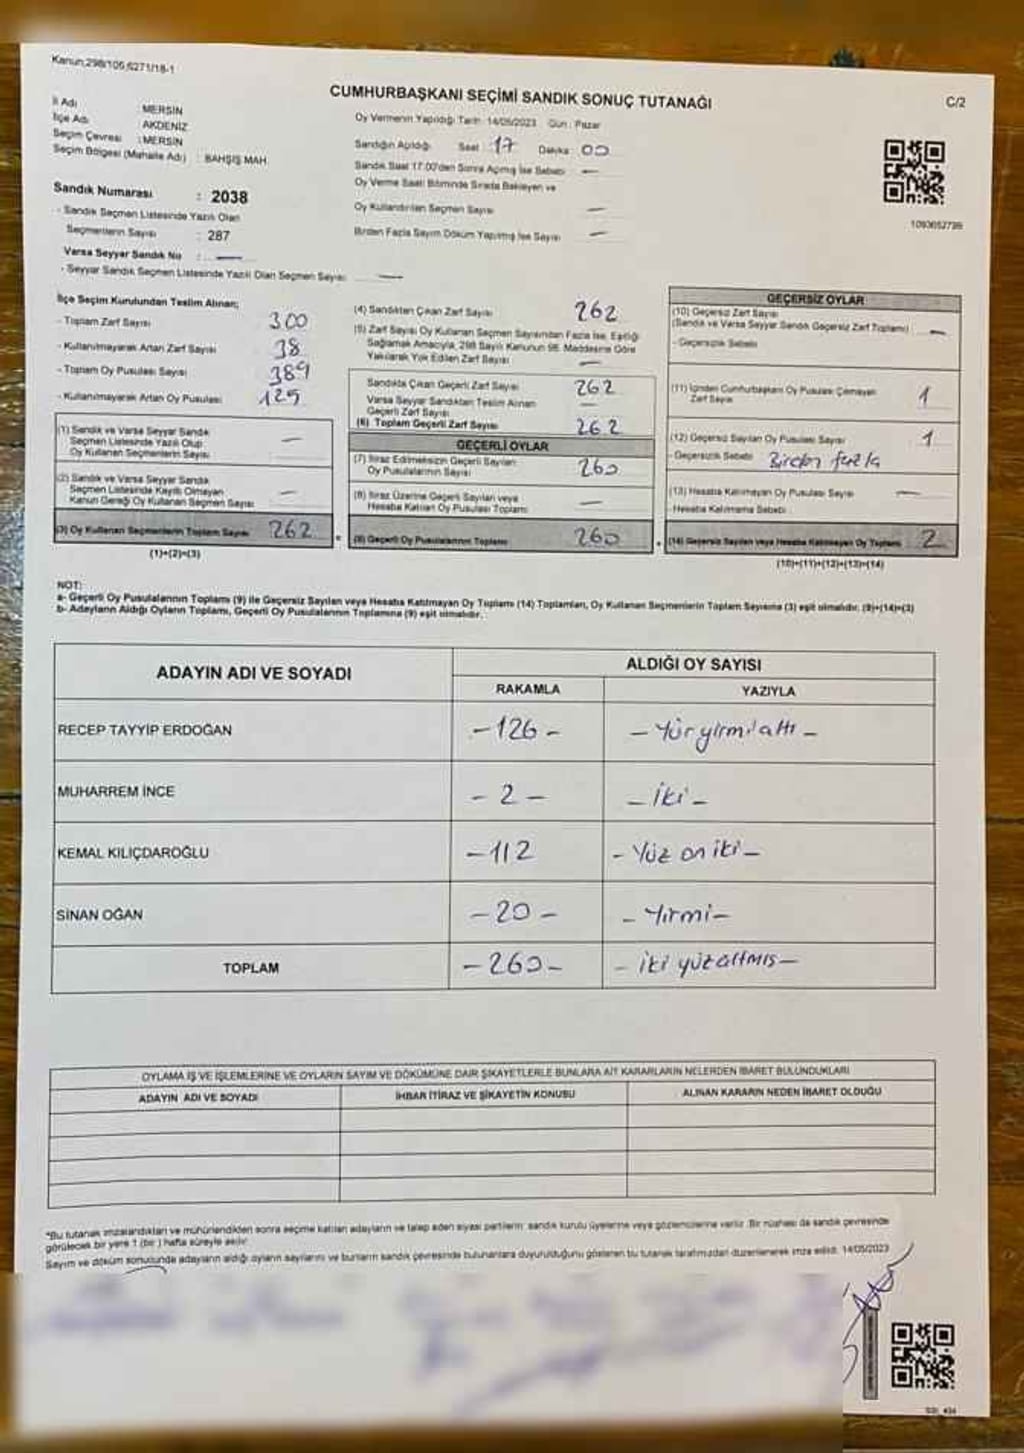 Kanun;298/106,6271/18-1
CUMHURBAŞKANI SEÇİMİ SANDIK SONUÇ TUTANAĞI
C/2
İl Adı MERSİN
İlçe Adı AKDENİZ
Seçim Çevresi : MERSİN
Seçim Bölgesi (Mahalle Adı) : BAHŞİŞ MAH.
Oy Vermenin Yapıldığı Tarih: 14/05/2023 Gün : Pazar
Sandığın Açıldığı Saat 17 Dakika 00
Sandık Saat 17.00'den Sonra Açılmış İse Sebebi —
Oy Verme Saati Bitiminde Sırada Bekleyen ve
Oy Kullandırılan Seçmen Sayısı —
Birden Fazla Sayım Döküm Yapılmış İse Sayısı —
1093652799
Sandık Numarası : 2038
- Sandık Seçmen Listesinde Yazılı Olan
Seçmenlerin Sayısı : 287
Varsa Seyyar Sandık No : —
- Seyyar Sandık Seçmen Listesinde Yazılı Olan Seçmen Sayısı: —
İlçe Seçim Kurulundan Teslim Alınan;
- Toplam Zarf Sayısı 300
- Kullanılmayarak Artan Zarf Sayısı 38
- Toplam Oy Pusulası Sayısı 389
- Kullanılmayarak Artan Oy Pusulası 129
(1) Sandık ve Varsa Seyyar Sandık
Seçmen Listesinde Yazılı Olup
Oy Kullanan Seçmenlerin Sayısı —
(2) Sandık ve Varsa Seyyar Sandık
Seçmen Listesinde Kayıtlı Olmayan
Kanun Gereği Oy Kullanan Seçmen Sayısı —
(3) Oy Kullanan Seçmenlerin Toplam Sayısı 262
(1)+(2)=(3)
(4) Sandıktan Çıkan Zarf Sayısı 262
(5) Zarf Sayısı Oy Kullanan Seçmen Sayısından Fazla İse, Eşitliği
Sağlamak Amacıyla, 298 Sayılı Kanunun 98. Maddesine Göre
Yakılarak Yok Edilen Zarf Sayısı —
Sandıkta Çıkan Geçerli Zarf Sayısı 262
Varsa Seyyar Sandıktan Teslim Alınan
Geçerli Zarf Sayısı —
(6) Toplam Geçerli Zarf Sayısı 262
GEÇERLİ OYLAR
(7) İtiraz Edilmeksizin Geçerli Sayılan
Oy Pusulalarının Sayısı 260
(8) İtiraz Üzerine Geçerli Sayılan veya
Hesaba Katılan Oy Pusulası Toplamı —
(9) Geçerli Oy Pusulalarının Toplamı 260
GEÇERSİZ OYLAR
(10) Geçersiz Zarf Sayısı
(Sandık ve Varsa Seyyar Sandık Geçersiz Zarf Toplamı) —
- Geçersizlik Sebebi
(11) İçinden Cumhurbaşkanı Oy Pusulası Çıkmayan
Zarf Sayısı 1
(12) Geçersiz Sayılan Oy Pusulası Sayısı 1
- Geçersizlik Sebebi Birden fazla
(13) Hesaba Katılmayan Oy Pusulası Sayısı —
- Hesaba Katılmama Sebebi
(14) Geçersiz Sayılan veya Hesaba Katılmayan Oy Toplamı 2
(10)+(11)+(12)+(13)=(14)
NOT:
a- Geçerli Oy Pusulalarının Toplamı (9) ile Geçersiz Sayılan veya Hesaba Katılmayan Oy Toplamı (14) Toplamları, Oy Kullanan Seçmenlerin Toplam Sayısına (3) eşit olmalıdır. (9)+(14)=(3)
b- Adayların Aldığı Oyların Toplamı, Geçerli Oy Pusulalarının Toplamına (9) eşit olmalıdır.
ADAYIN ADI VE SOYADI
ALDIĞI OY SAYISI
RAKAMLA YAZIYLA
RECEP TAYYİP ERDOĞAN -126- -Yüz yirmi altı-
MUHARREM İNCE -2- -İki-
KEMAL KILIÇDAROĞLU -112 -Yüz on iki-
SİNAN OĞAN -20- -Yirmi-
TOPLAM -260- -iki yüz altmış-
OYLAMA İŞ VE İŞLEMLERİNE VE OYLARIN SAYIM VE DÖKÜMÜNE DAİR ŞİKAYETLERLE BUNLARA AİT KARARLARIN NELERDEN İBARET BULUNDUKLARI
ADAYIN ADI VE SOYADI İHBAR İTİRAZ VE ŞİKAYETİN KONUSU ALINAN KARARIN NEDEN İBARET OLDUĞU
*Bu tutanak imzalandıktan ve mühürlendikten sonra seçime katılan adayların ve talep eden siyasi partilerin sandık kurulu üyelerine veya gözlemcilerine verilir. Bir nüshası da sandık çevresinde
görülecek bir yere 1 (bir) hafta süreyle asılır.
Sayım ve döküm sonucunda adayların aldığı oyların sayılarını ve bunların sandık çevresinde bulunanlara duyurulduğunu gösteren bu tutanak tarafımızdan düzenlenerek imza edildi. 14/05/2023